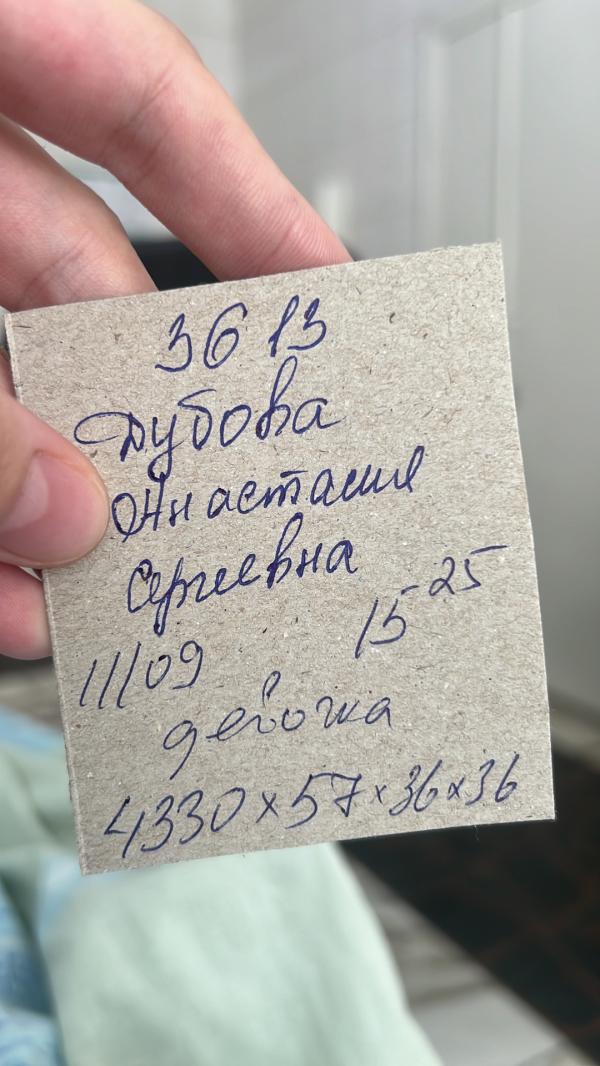 3613
Дубова
Анастасия
Сергеевна
11/09 15-25
девочка
4330×57×36×36